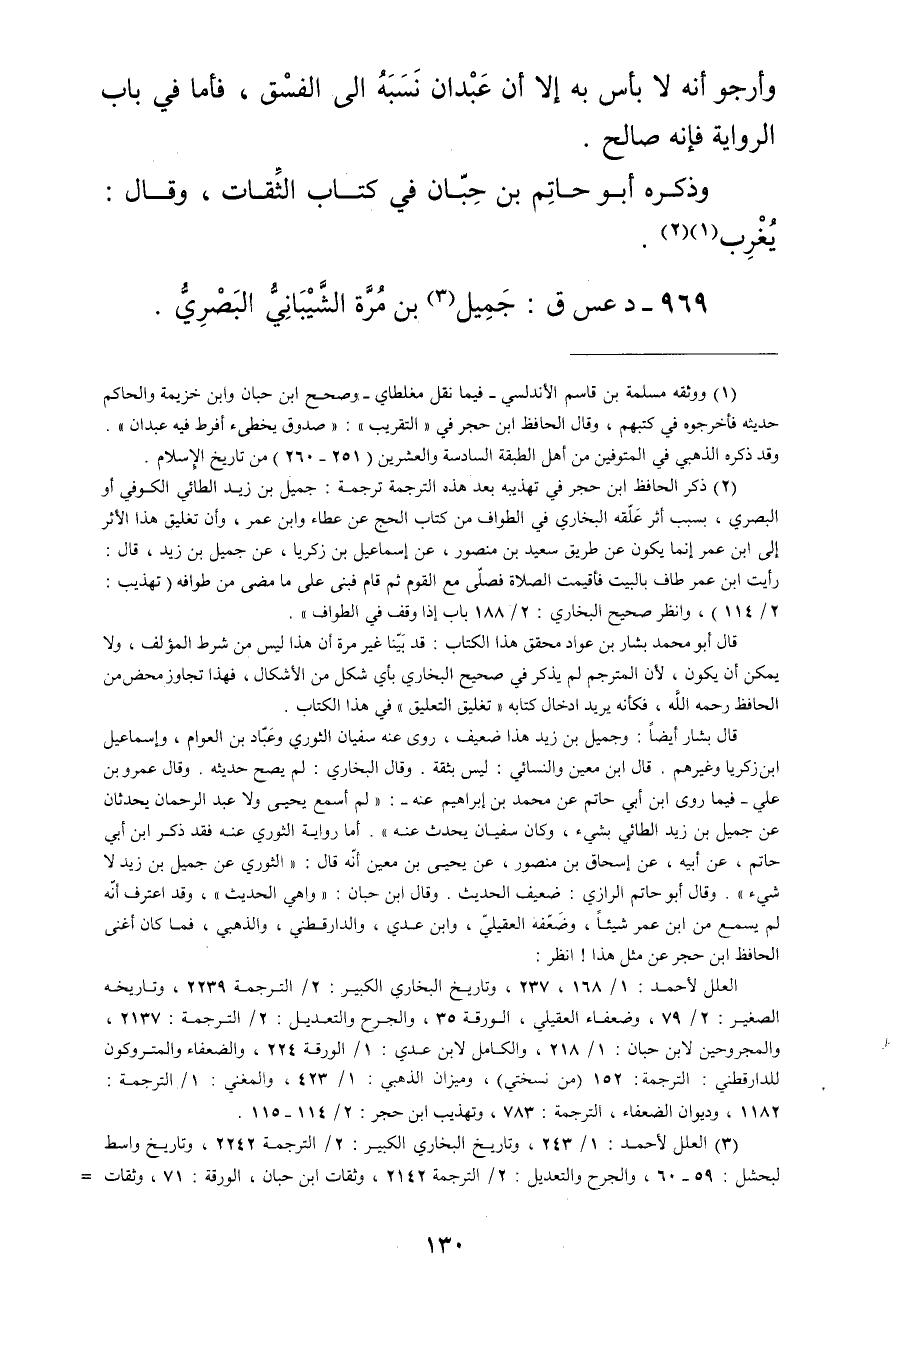 وأرجو أنه لا بأس به إلا أن عَبْدان نَسَبَهُ الى الفسْق ، فأما في باب
الرواية فإنه صالح .
وذكره أبو حاتِم بن حِبّان في كتاب الثِّقات ، وقال :
يُغْرِب(١)(٢) .
٩٦٩ - د عس ق : جَمِيل(٣) بن مُرَّة الشَّيْبَانِيُّ البَصْرِيُّ .
(١) ووثقه مسلمة بن قاسم الأندلسي - فيما نقل مغلطاي - وصحح ابن حبان وابن خزيمة والحاكم
حديثه فأخرجوه في كتبهم ، وقال الحافظ ابن حجر في « التقريب » : « صدوق يخطىء أفرط فيه عبدان » .
وقد ذكره الذهبي في المتوفين من أهل الطبقة السادسة والعشرين ( ٢٥١ - ٢٦٠ ) من تاريخ الإسلام .
(٢) ذكر الحافظ ابن حجر في تهذيبه بعد هذه الترجمة ترجمة : جميل بن زيد الطائي الكوفي أو
البصري ، بسبب أثر عَلّقه البخاري في الطواف من كتاب الحج عن عطاء وابن عمر ، وأن تغليق هذا الأثر
إلى ابن عمر إنما يكون عن طريق سعيد بن منصور ، عن إسماعيل بن زكريا ، عن جميل بن زيد ، قال :
رأيت ابن عمر طاف بالبيت فأقيمت الصلاة فصلّى مع القوم ثم قام فبنى على ما مضى من طوافه ( تهذيب :
٢/ ١١٤ ) ، وانظر صحيح البخاري : ٢/ ١٨٨ باب إذا وقف في الطواف » .
قال أبو محمد بشار بن عواد محقق هذا الكتاب : قد بيّنا غير مرة أن هذا ليس من شرط المؤلف ، ولا
يمكن أن يكون ، لأن المترجم لم يذكر في صحيح البخاري بأي شكل من الأشكال ، فهذا تجاوز محض من
الحافظ رحمه الله ، فكأنه يريد ادخال كتابه « تغليق التعليق » في هذا الكتاب .
قال بشار أيضاً : وجميل بن زيد هذا ضعيف ، روى عنه سفيان الثوري وعَبّاد بن العوام ، وإسماعيل
ابن زكريا وغيرهم . قال ابن معين والنسائي : ليس بثقة . وقال البخاري : لم يصح حديثه . وقال عمرو بن
علي - فيما روى ابن أبي حاتم عن محمد بن إبراهيم عنه - : « لم أسمع يحيى ولا عبد الرحمان يحدثان
عن جميل بن زيد الطائي بشيء ، وكان سفيان يحدث عنه » . أما رواية الثوري عنه فقد ذكر ابن أبي
حاتم ، عن أبيه ، عن إسحاق بن منصور ، عن يحيى بن معين أنّه قال : « الثوري عن جميل بن زيد لا
شيء » . وقال أبو حاتم الرازي : ضعيف الحديث . وقال ابن حبان : « واهي الحديث » ، وقد اعترف أنّه
لم يسمع من ابن عمر شيئاً ، وضَعّفه العقيليّ ، وابن عدي ، والدارقطني ، والذهبي ، فما كان أغنى
الحافظ ابن حجر عن مثل هذا ! انظر :
العلل لأحمد : ١/ ١٦٨ ، ٢٣٧ ، وتاريخ البخاري الكبير : ٢/ الترجمة ٢٢٣٩ ، وتاريخه
الصغير : ٢/ ٧٩ ، وضعفاء العقيلي ، الورقة ٣٥ ، والجرح والتعديل : ٢/ الترجمة : ٢١٣٧ ،
والمجروحين لابن حبان : ١/ ٢١٨ ، والكامل لابن عدي : ١/ الورقة ٢٢٤ ، والضعفاء والمتروكون
للدارقطني : الترجمة: ١٥٢ (من نسختي) ، وميزان الذهبي : ١/ ٤٢٣ ، والمغني : ١/ الترجمة :
١١٨٢ ، وديوان الضعفاء ، الترجمة : ٧٨٣ ، وتهذيب ابن حجر : ٢/ ١١٤ - ١١٥ .
(٣) العلل لأحمد : ١/ ٢٤٣ ، وتاريخ البخاري الكبير : ٢/ الترجمة ٢٢٤٢ ، وتاريخ واسط
لبحشل : ٥٩ - ٦٠ ، والجرح والتعديل : ٢/ الترجمة ٢١٤٢ ، وثقات ابن حبان ، الورقة : ٧١ ، وثقات =
١٣٠